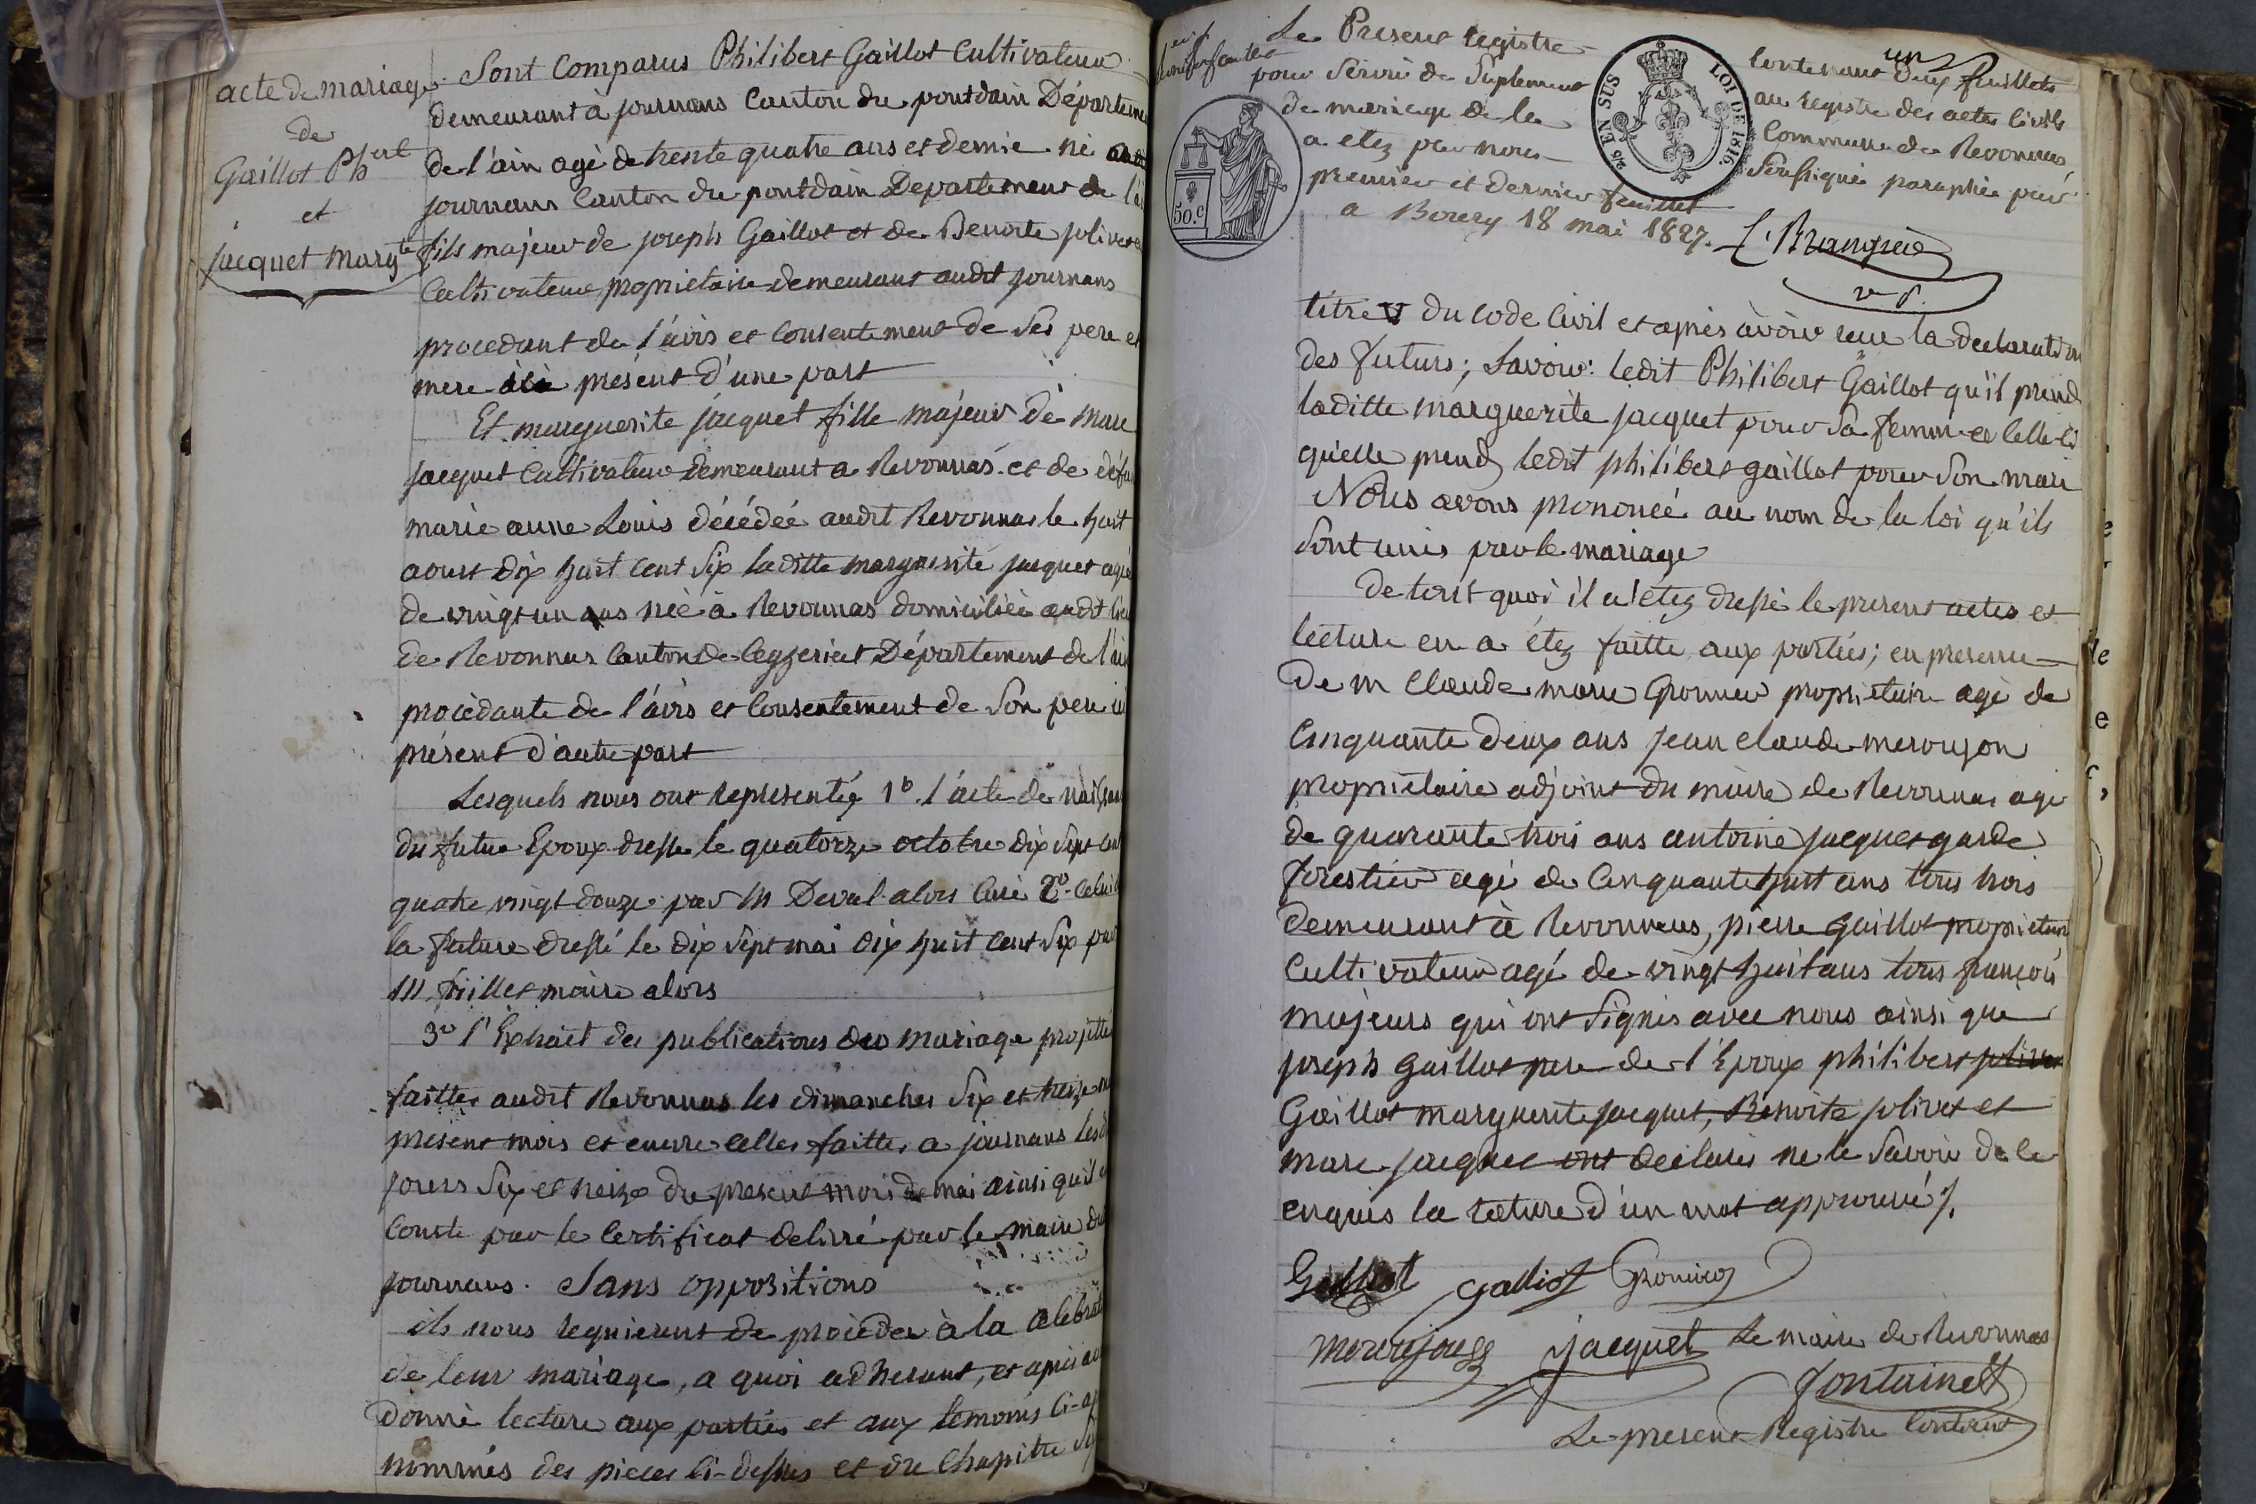 acte de mariage
de
Gaillot Ph.ert
et
jacquet marg.te
Sont Comparus Philibert Gaillot Cultivateur
demeurant à journans Canton du pontdain Départeme
de l'ain agé de trente quatre ans et demie né
journans Canton du pontdain Departement de l'ai
fils majeur de joseph Gaillot et de Benoite jolivet
Cultivateur proprietaire demeurant audit journans
procedant de l'avis et Consentement de Ses pere et
mere présent d'une part
Et marguerite jacquet fille majeur de Marc
jacquet Cultivateur demeurant a Revonnas et de défu
marie anne Louis décédée audit Revonnas le huit
aoust dix huit Cent Six laditte marguerite jacquet agée
de vingt un ans née à Revonnas domiciliée audit lieu
de Revonnas Canton de Ceyzeriat Département de l'ain
procédante de l'avis et Consentement de Son pere ici
présent d'autre part
Lesquels nous ont representéz 1o. l'acte de naissan
du futur Epoux dressé le quatorze octobre dix Sept cent
quatre vingt douze par M Deval alors Curé 2o. Celui d
la future dressé le dix Sept mai dix huit Cent Six par
M. maire alors
3o l'Extrait des publications de mariage projetté
faittes audit Revonnas les dimanches Six et treize
present mois et encore celles faittes a journans les
jours Six et treize du present mois de mai ainsi qu'il
Conste par le Certificat delivré par le maire de
journans. Sans oppositions
ils nous requierent de procéder à la Celebrat
de leur mariage, a quoi adherant, et apres av
donné lecture aux parties et aux temoins Ci-ap
nommés des pieces Ci-dessus et du Chapitre Si
Le Present registre
pour Servir de Suplement
de mariage de la
a etez par nous
premier et dernier feuillet
a Bourg 18 mai 1827.
50.c
EN SUS
LOI DE 1816.
un
Contenant deux feuillets
au registre des actes Civils
Commune de Revonnas
paraphée par
titre V du Code Civil et après avoir reçu la declaration
des futurs; Savoir: ledit Philibert Gaillot qu'il prend
laditte marguerite jacquet pour Sa femme et Celle-Ci
qu'elle prend ledit philibert gaillot pour Son mari
Nous avons prononcé au nom de la loi qu'ils
Sont unis par le mariage
De tout quoi il a étez dressé le present actes et
lecture en a étez faitte aux parties; en presence
De m Claude marie Gromier proprietaire agé de
Cinquante deux ans jean claude
proprietaire adjoint du maire de Revonnas agé
de quarante trois ans antoine jacquet garde
forestier agé de Cinquante huit ans tous trois
demeurant à Revonnas, pierre gaillot proprietaire
Cultivateur agé de vingt huit ans tous françois
majeurs qui ont Signés avec nous ainsi que
joseph gaillot pere de l'Epoux philibert jolivet
Gaillot marguerite jacquet, Benoite jolivet et
marc jacquet ont déclarés ne le Savoir de ce
enquis la rature d'un mot approuvé
Gaillot galliot Gromier
jacquet Le maire de Revonnas
fontaine
Le present Registre Contenant